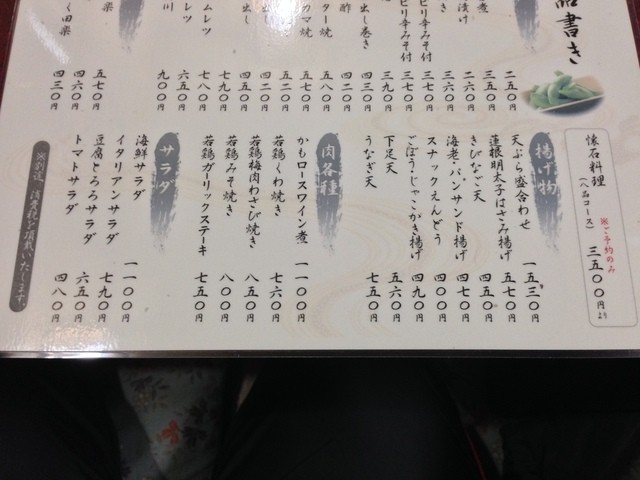 品書き
二五〇円
煮 三五〇円
漬け 二六〇円
き 三六〇円
ピリ辛みそ付 三七〇円
ピリ辛みそ付 三七〇円
三九〇円
出し巻き 四三〇円
酢 四二〇円
ター焼 五八〇円
カマ焼 五二〇円
四二〇円
出し 四五〇円
七九〇円
ムレツ 七八〇円
レツ 六五〇円
川 九〇〇円
楽 五七〇円
四六〇円
く田楽 四三〇円
懐石料理
(八品コース)
※ご予約のみ
三五〇〇円より
揚げ物
天ぷら盛合わせ 一五三〇円
蓮根明太子はさみ揚げ 五七〇円
きびなご天 四五〇円
海老・パンサンド揚げ 四七〇円
スナックえんどう 四〇〇円
ごぼう・じゃこかき揚げ 四九〇円
下足天 五六〇円
うなぎ天 七五〇円
肉各種
かもロースワイン煮 一一〇〇円
若鶏くわ焼き 七六〇円
若鶏梅肉わさび焼き 八五〇円
若鶏みそ焼き 八〇〇円
若鶏ガリックステーキ 七五〇円
サラダ
海鮮サラダ 一一〇〇円
イタリアンサラダ 七九〇円
豆腐とろろサラダ 六五〇円
トマトサラダ 四八〇円
※別途、消費税を頂戴いたします。